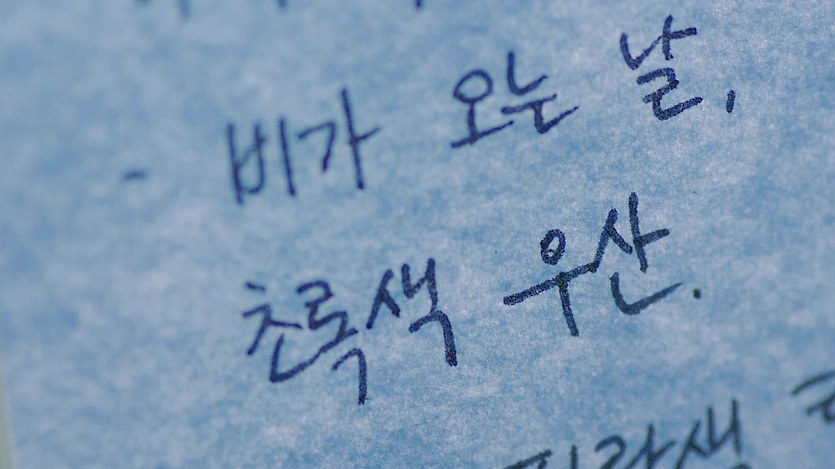 - 비가 오는 날,
초록색 우산.